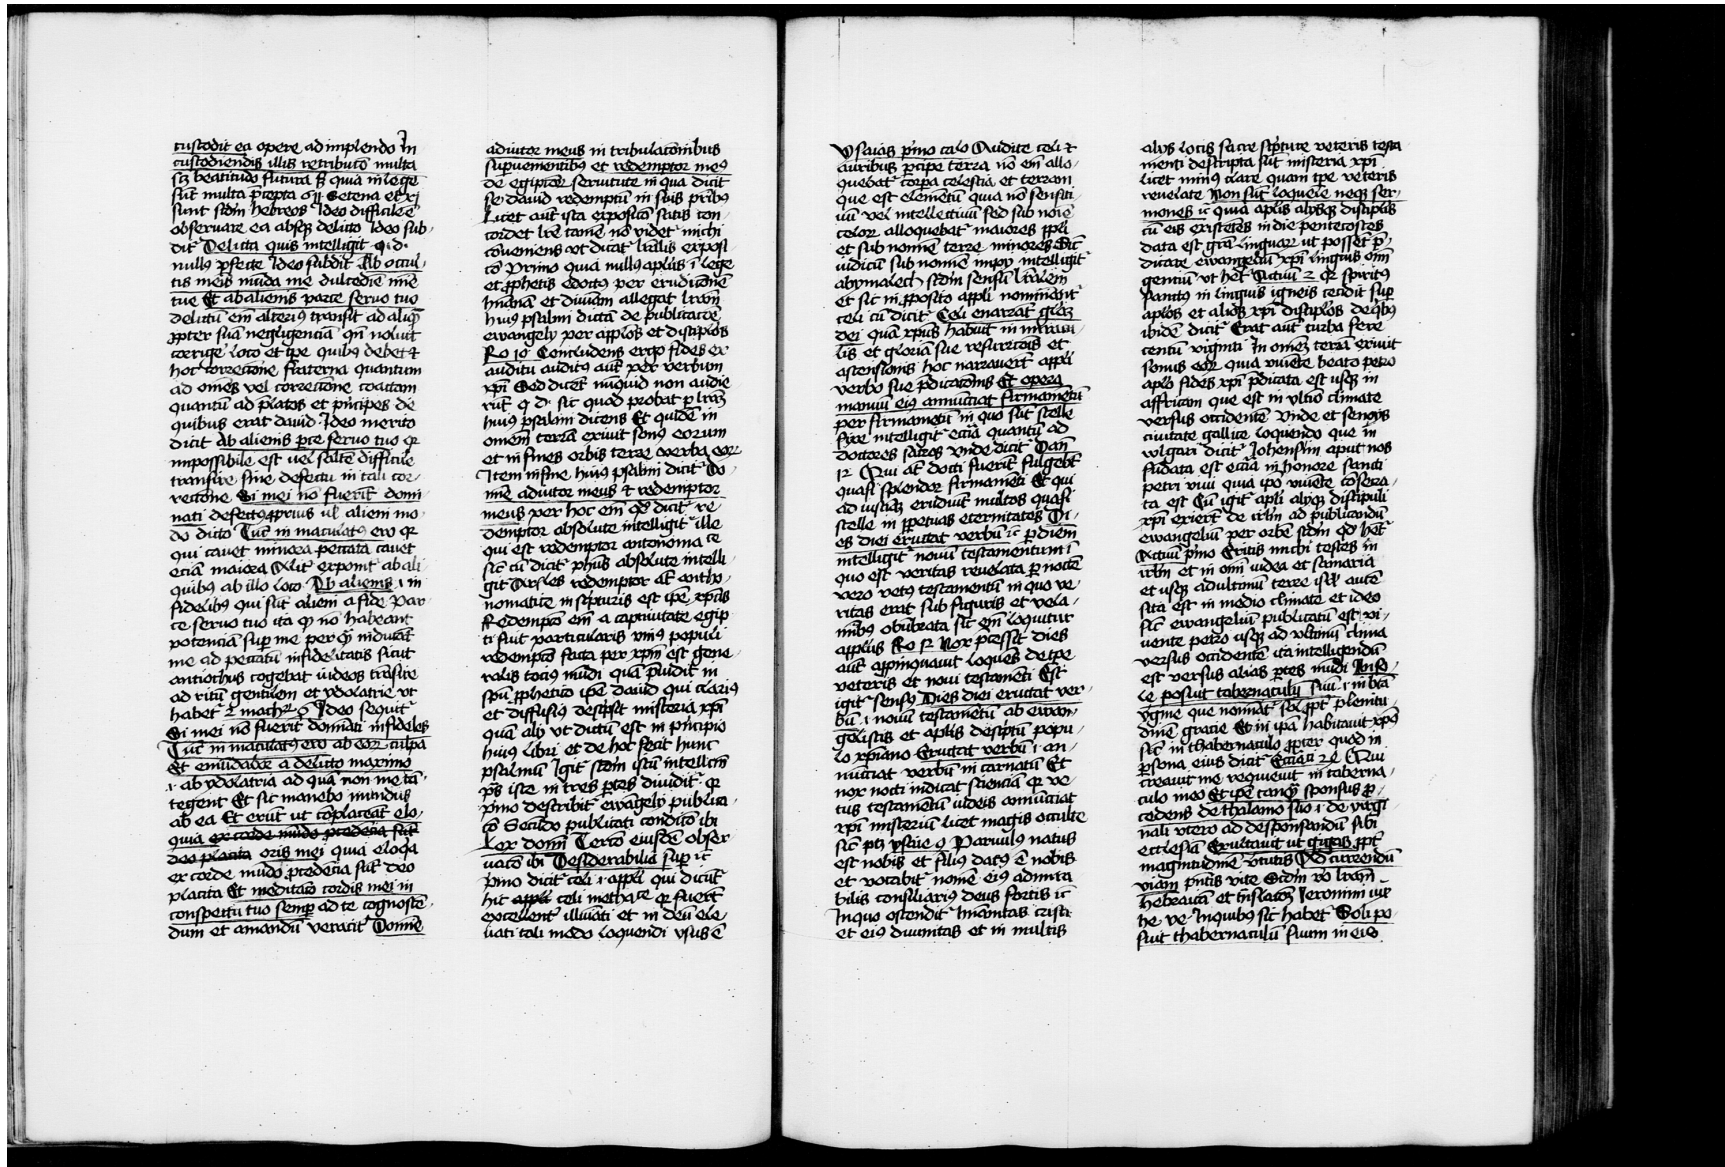 custodit ea opere adimplendo In
custodiendis illis retributō multa
scȝ beatitudo futura sȝ quia in lege
sūt multa p̄cepta
sunt scdm hebreos Ideo difficile ē
obseruare ea absqȝ delicto Ideo sub-
dit Delicta quis intelligit q. d.
nullꝰ pfecte Ideo subdit Ab occul-
tis meis mūda me dulcedīe mīe
tue Et ab alienis parce seruo tuo
delictū em̄ alteriꝰ transit ad aliqͣ
ꝓpter suā negligenciā qn̄ noluit
corrige loco et tpe quibꝰ debet &
hoc correctione fraterna quantum
ad om̄es vel correctione coactam
quantū ad p̄latos et p̄ncipes de
quibus erat dauid Ideo merito
dicit Ab alienis pce seruo tuo qꝛ
impossibile est uel saltē difficile
transire sine defectu in tali cor-
rectione Si mei nō fuerit domi-
nati defectꝰ ꝓprius ul̄ alieni mo-
do dicto Tūc inmaculatꝰ ero qꝛ
qui cauet minora peccata cauet
eciā maiora Alit̄ exponit ab ali
quibus ab illo loco Ab alienis .i. in
fidelibꝰ qui sūt alieni a fide Par-
ce seruo tuo ita qͥ nō habeant
potenciā suꝑ me per qͣ inducāt
me ad peccatū infidelitatis sicut
antiochus cogebat iudeos trāsire
ad ritū gentilem et ydolatrie vt
habet 2 mach 6 Ideo sequit̄
Si mei nō fuerit domiāti infideles
Tūc inmaculatꝰ ero ab eoꝝ culpa
Et emūdabor a delicto maximo
.i. ab ydolatria ad quā non me cō-
tegent Et sic manebo mundus
ab ea Et erūt ut cōplaceāt elo-
quia ex corde mūdo p̄cedēcia sūt
deo placita oris mei quia eloqͣ
ex corde mūdo ꝓcedēcia sūt deo
placita Et meditatō cordis mei in
conspectu tuo semꝑ ad te cognoscē-
dum et amandū veracit̄ Domīe
adiutor meus in tribulacōnibus
suꝑuenientibꝰ et redemptor meꝰ
de egiptioꝝ seruitute in qua dicit
se dauid redemptū in suis pribꝰ
Licet aut̄ ista exposicō satis con-
cordet lrē tamē nō videt̄ michi
cōueniens vt dicat̄ lrālis exposi-
cō Primo quia nullꝰ aplus ī lege
et ꝓphetis edoctꝰ per erudicōnem
hūanā et diuinam allegat lrām
huiꝰ psalmi dictā de publicacōe
ewangelij per apostolos et discipulos
Ro 10 Concludens ergo fides ex
auditu auditꝰ aut̄ per verbum
xp̄i Sed dico nūquid non audie
rūt q d. sic quod probat ꝑ lrāȝ
huiꝰ psalmi dicens Et quidē in
omēm terrā exiuit sonꝰ eorum
et in fines orbis terre verba eoꝝ
Item in fine huiꝰ psalmi dicit̄ Do-
mīe adiutor meus & redemptor
meus per hoc em̄ qd̄ dicit̄ re-
demptor absolute intelligit̄ ille
qui est redemptor antonoma ce
sic cū dicit̄ ph̄us absolute intelli-
git̄ Arl̄es redemptor at̄ antho-
nomatice in scpturis est ip̄e xp̄us
Redempcō em̄ a captiuitate egip
ti fuit particularis vniꝰ populi
redempcō facta per xp̄m est gene-
ralis tociꝰ mūdi quā p̄uidit in
spū ꝓphetico ip̄e dauid qui clariꝰ
et diffusiꝰ descpsit misteria xp̄i
quā alij vt dictū est in p̄ncipio
huiꝰ libri et de hoc fecit hunc
psalmū Igit̄ scdm istū intellectū
ps̄ iste in tres ptes diuidit̄ qꝛ
p̄mo describit̄ ewāgelij publica-
cō Secūdo publicati condicō ibi
Lex domī Tercō eiusdē obser-
uacō ibi Desiderabilia suꝑ ⁊c
p̄mo dicit̄ celi .i. appli qui dicūt̄
hic appli celi metha ce qꝛ fuert̄
excellent̄ illuīati et in deū ele-
uati tali modo loquendi vsus ē
Ysaias p̄mo ca̅lo Audite celi &
auribus ꝑcipe terra nō em̄ allo-
quebat̄ corpa celestia et terram
que est elemētū quia nō sensiti-
uū vel intellectiuū sed sub noīe
celoꝝ alloquebat̄ maiores ppl̄i
et sub nomīe terre minores Sic̄
iudicū sub nomīe impoꝝ intelligit̄
abymalech scdm sensū lrālem
et sic in ꝓposito appl̄i nominant̄
celi cū dicit̄ Celi enarrāt glāȝ
dei quā xp̄us habuit in mirac-
lis et gloriā sue resurrcōis et
ascensionis hoc narrauert̄ appl̄i
verbo sue p̄dicacōnis Et opera
manuū eiꝰ annūciat firmamētū
per firmamētū in quo sūt stelle
fixe intelligit̄ eccīa quantū ad
doctores sacros vnde dicit̄ Dan̄
12 Qui at̄ docti fuerīt fulgebūt
quasi splendor firmamēti Et qui
ad iusticiā erudiūt multos quasi
stelle in ꝑpetuas eternitates Di-
es diei eructat verbū ⁊c ꝑ diēm
intelligit̄ nouū testamentum ī
quo est veritas reuelata ꝑ noctē
vero vetꝰ testamentū in quo ve-
ritas erat sub figuris et vela-
mībus obūbrata sic em̄ loquitur
applūs Ro 12 Nox p̄cessit dies
aut̄ appinquauit loquēs de tpe
veteris et noui testamēti Est
igit̄ sensꝰ Dies diei eructat ver-
bū .i. nouū testamētū ab ewan-
gelistis et aplis descptū popu-
lo xp̄iano Eructat verbū .i. an-
nūciat verbū incarnatū Et
nox nocti indicat scienciā qꝛ ve-
tus testamētū iudeis annūciat
xp̄i misteriū licet magis occulte
sic̄ ptȝ ysaie 9 Paruulus natus
est nobis et filiꝰ datꝰ ē nobis
et vocabit̄ nomē eiꝰ admira
bilis consiliariꝰ deus fortis ⁊c
In quo ostendit̄ hūanitas cristi
et eiꝰ diuinitas et in multis
alijs locis sacre scpture veteris testa
menti descripta sūt misteria xp̄i
licet minꝰ clare quam tpe veteris
reuelate Non sūt loquele neqȝ ser-
mones ⁊c quia aplis alijsqȝ discipulis
cū eis existētes in die pentecostes
data est grā linguaꝝ ut possēt p̄-
dicare ewangeliū xp̄i linguis om̄i
genciū vt het̄ Actuū 2 qꝛ spiritꝰ
sanctus in linguis igneis cecidit suꝑ
aplos et alios xp̄i discipulos de qͥbꝰ
ibidē dicit̄ Erat aut̄ turba fere
centū viginti In om̄eȝ terrā exiuit
sonus eoꝝ quia viuēte beato petro
aplo fides xp̄i p̄dicata est usqȝ in
affricam que est in vltīo climate
versus occidentē Vnde et senonis
ciuitate gallice loquendo que in
wlgari dicit̄ Johensim aput nos
fūdata est eccīa in honore sancti
petri viui quia ip̄o viuēte cōsecra-
ta est Cū igit̄ apli alijqȝ discipuli
xp̄i exierūt de irl̄m ad publicandū
ewangeliū per orbē scdm qd̄ het̄
Actuū p̄mo Eritis michi testes in
irl̄m et in om̄i iudea et samaria
et usqȝ ad ultimū terre isrl̄ autē
sita est in medio climate et ideo
sic̄ ewangeliū publicatū est vi-
uente petro usqȝ ad vltimū clima
versus occidentē ita intelligendū
est versus alias ptes mūdi In so-
le posuit tabernaculū suū .i. in btā
v̄gine que nomīat̄ sol ꝓpt̄ plenitu-
dīne gracie Et in ip̄a habitauit xp̄us
sic̄ in thabernaculo ꝓpter quod in
psona eius dicit̄ Eccīaci 24 Qui
creauit me requieuit in taberna-
culo meo Et ip̄e tanqͣ sponsus p̄-
cedens de thalamo suo .i. de virgi-
nali vtero ad desponsandū sibi
ecclesiā Exultauit ut gigas ꝓpt̄
magnitudīne v̄tutis Ad currendū
viam p̄ntis vite Scdm vo lrām
hebraicā et trāslacōȝ Jeronimi iux-
he ve In quibus sic habet̄ Soli po-
suit thabernaculū suum in eis